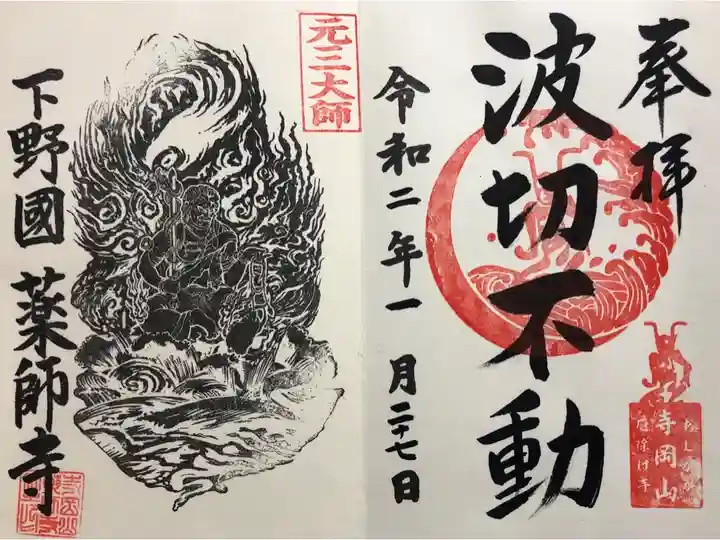 奉拝
波切不動
令和二年一月二十七日
寺岡山
あしかが
厄除け寺
元三大師
下野國 薬師寺